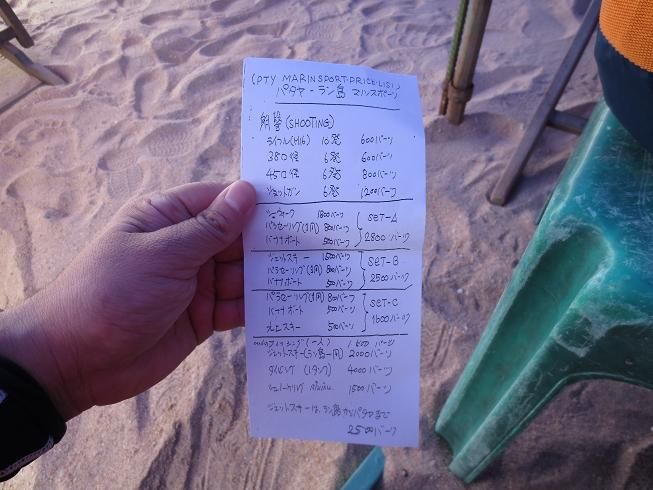 (PTY MARINSPORT-PRICE-LIST)
パタヤ・ラン島 マリンスポーツ
射撃 (SHOOTING)
ライフル(M16) 10発 600バーツ
38口径 6発 600バーツ
45口径 6発 800バーツ
ショットガン 6発 1200バーツ
シーウォーク 1800バーツ
パラセーリング(1周) 800バーツ SET-A
バナナボート 500バーツ 2800バーツ
ジェットスキー 1500バーツ SET-B
パラセーリング(1周) 800バーツ
バナナボート 500バーツ 2500バーツ
パラセーリング(1周) 800バーツ SET-C
バナナボート 500バーツ
水上スキー 500バーツ 1600バーツ
(一人) 1500バーツ
ジェットスキー(ラン島一周) 2000バーツ
ダイビング (1タンク) 4000バーツ
シュノーケリング 1500バーツ
ジェットスキーは、ラン島からパタヤまで
2500バーツ